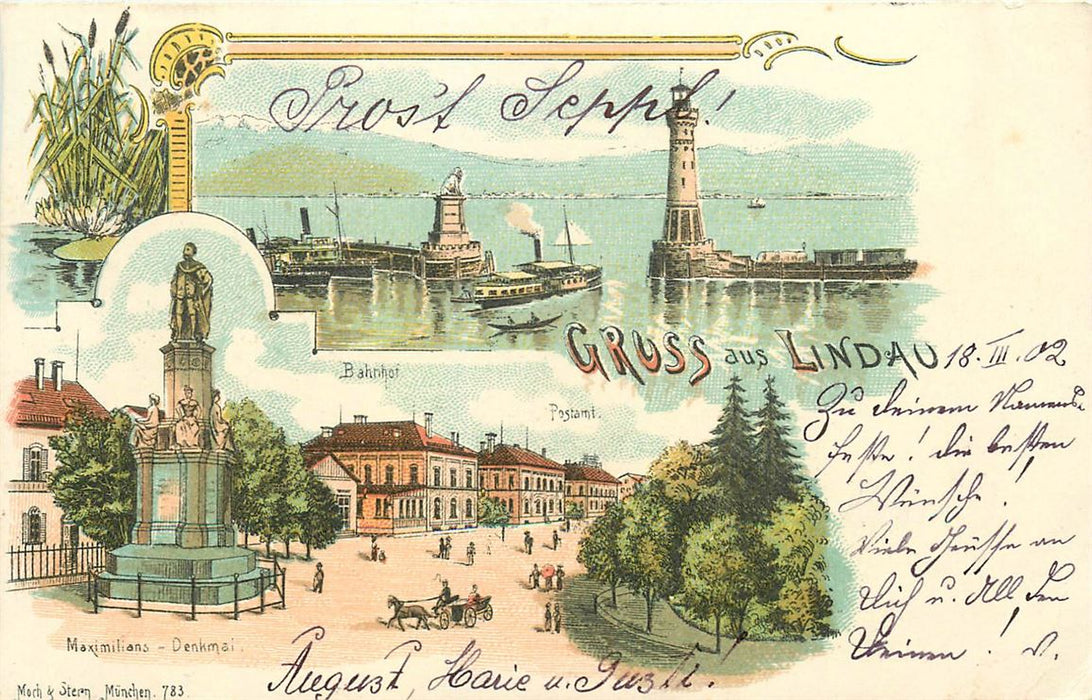 Prost Seppl!
GRUSS aus LINDAU
18. III. 02
Zu deinem Namens-
feste! die besten
Wünsche!
Viele Grüsse an
Dich u. All den
Deinen! v.
Bahnhof
Postamt.
Maximilians - Denkmal.
August, Marie u. Gusti!
Moch & Stern München. 783